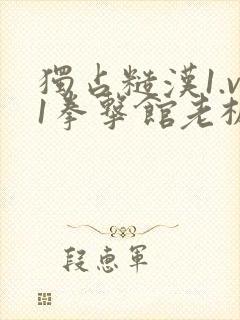 獨占糙漢1.v
1拳擊館老板
段惠軍